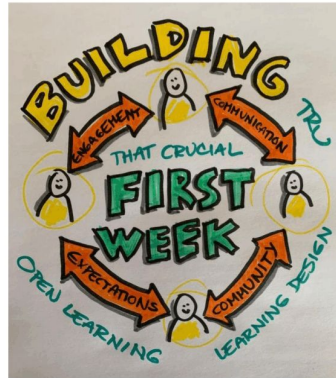 BUILDING
ENGAGEMENT
COMMUNICATION
TRU
THAT CRUCIAL
FIRST
WEEK
EXPECTATIONS
COMMUNITY
OPEN LEARNING
LEARNING DESIGN